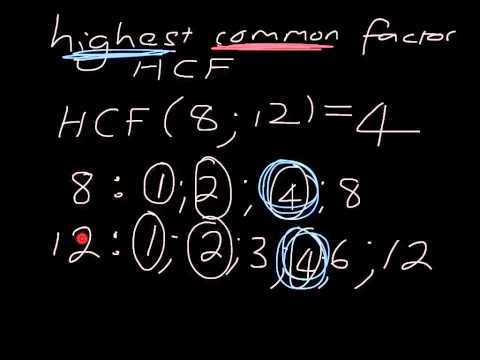 highest common factor
HCF
HCF(8;12)=4
8:1;2;4;8
12:1;2;3;4;6;12